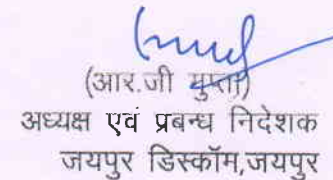 (आर.जी गुप्ता)
अध्यक्ष एवं प्रबन्ध निदेशक
जयपुर डिस्कॉम,जयपुर